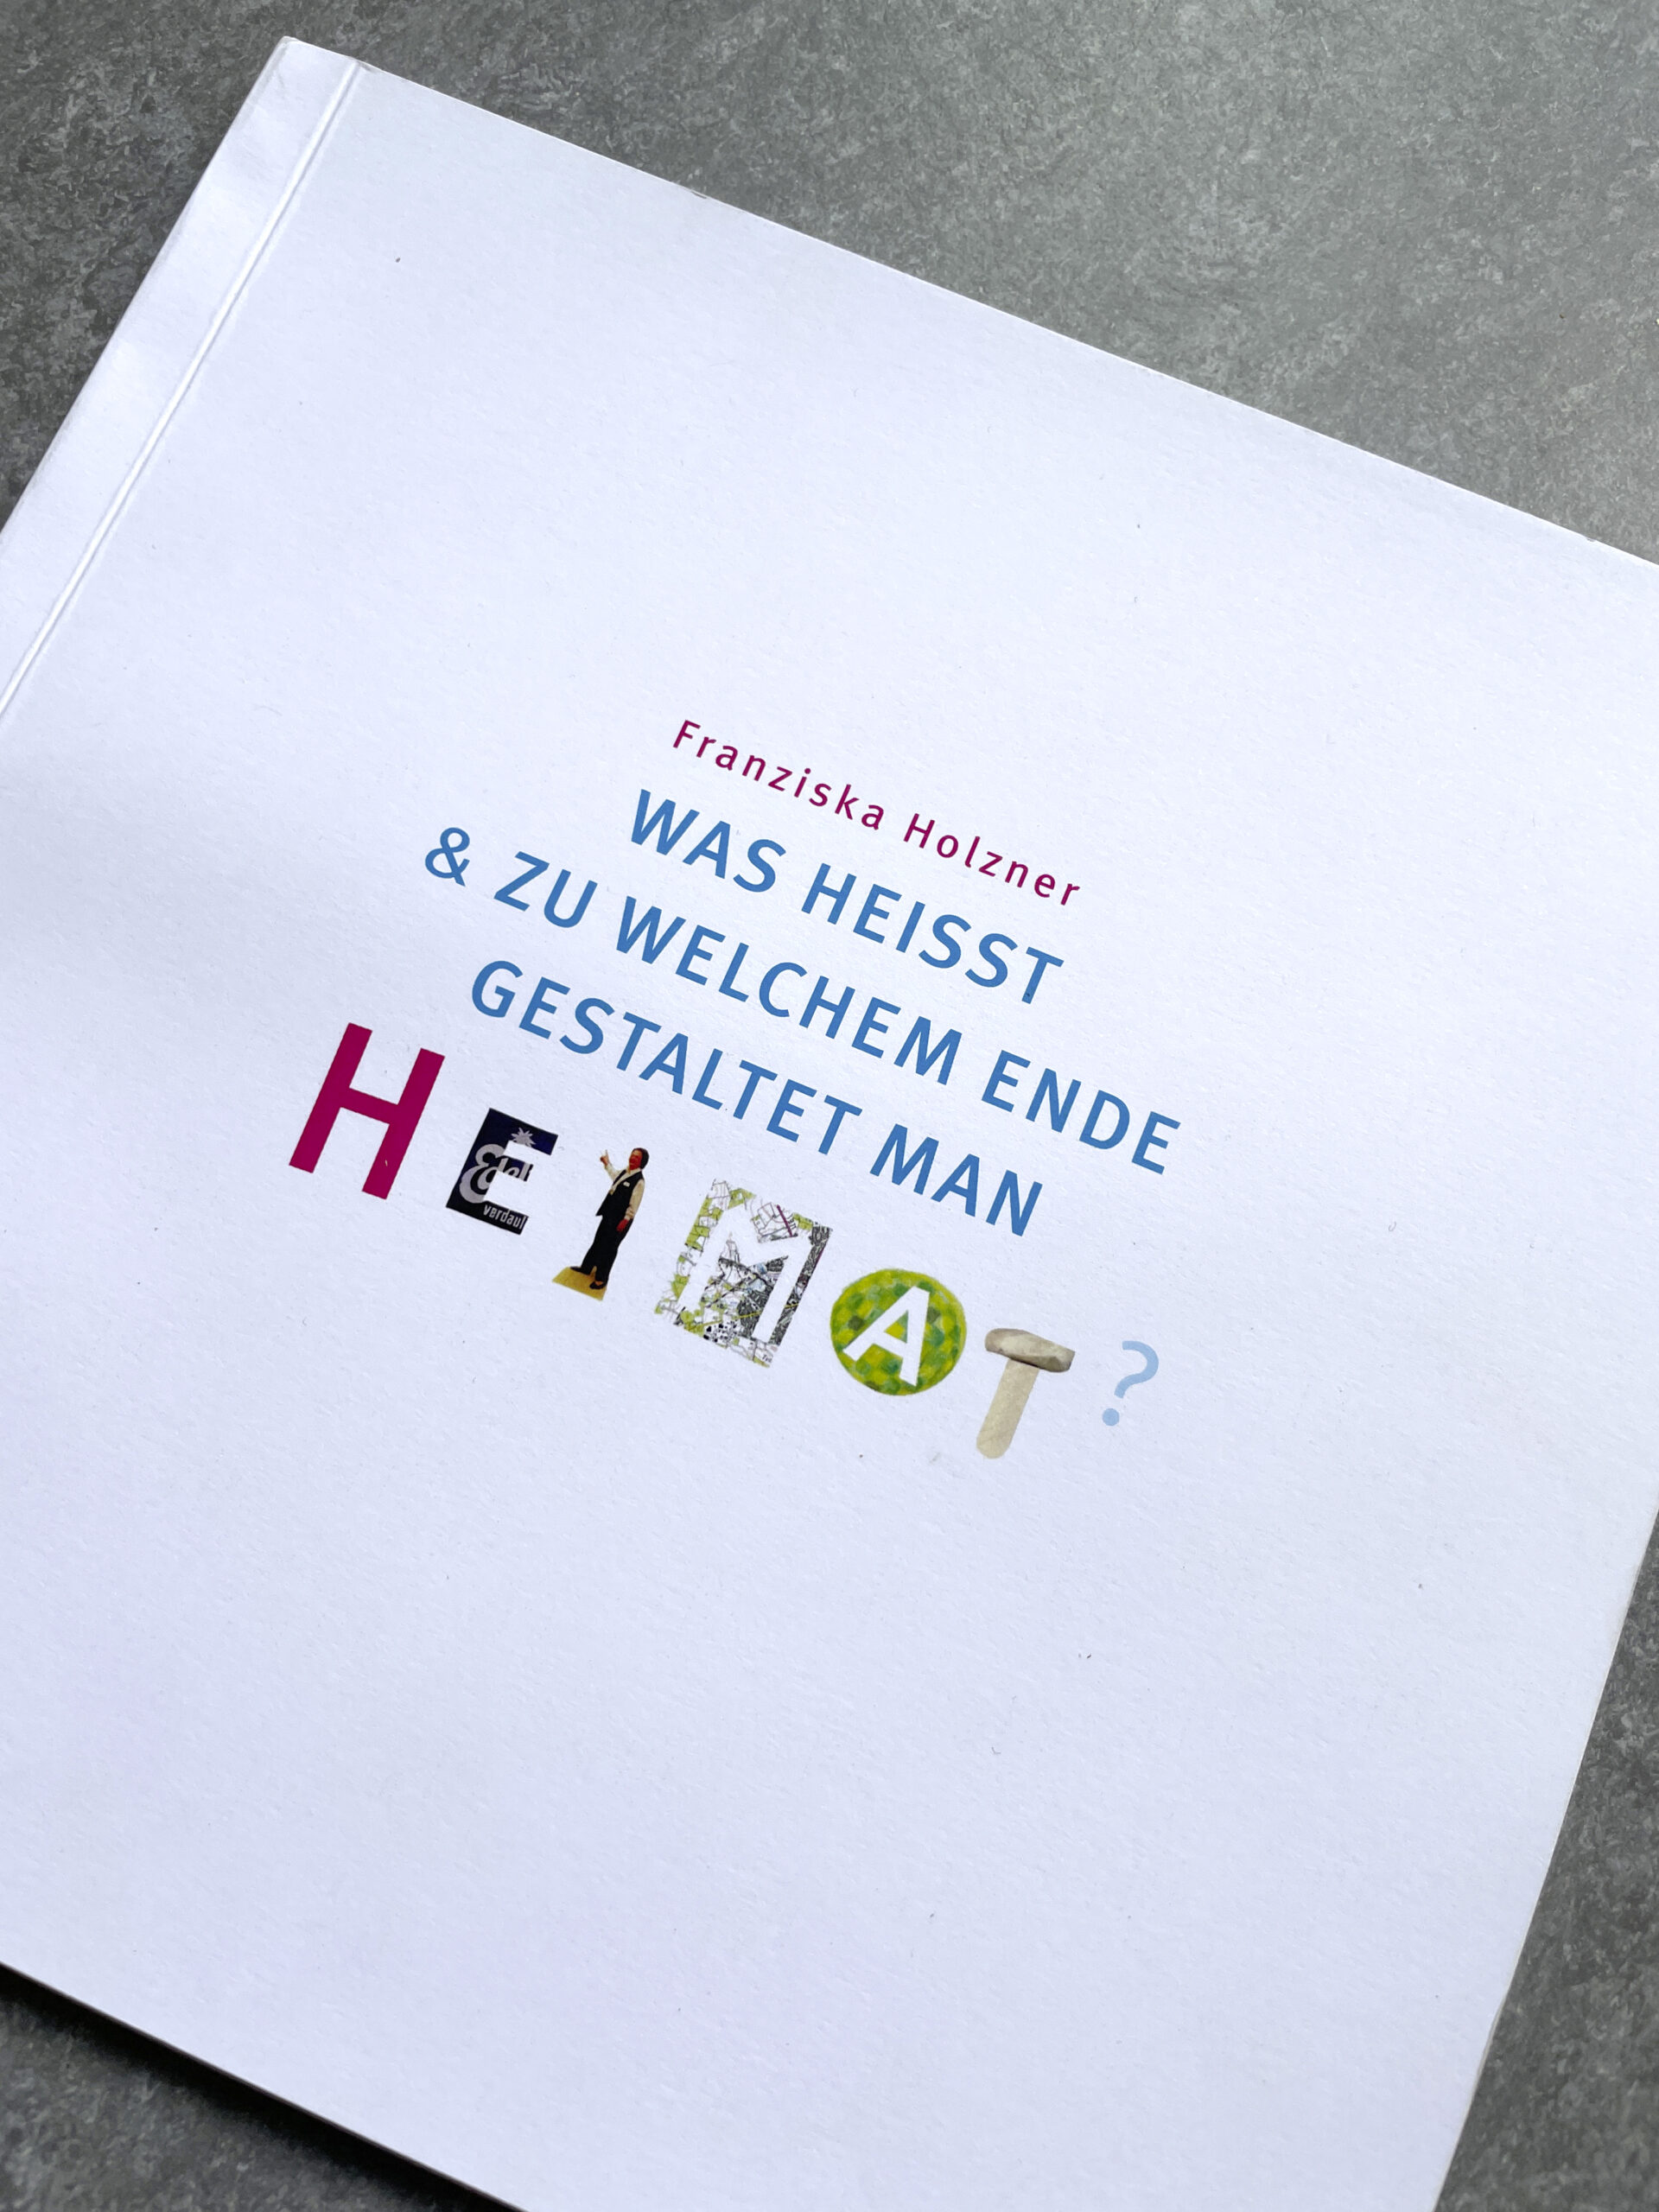 Franziska Holzner
WAS HEISST
& ZU WELCHEM ENDE
GESTALTET MAN
HEIMAT?
Edel
verdaul